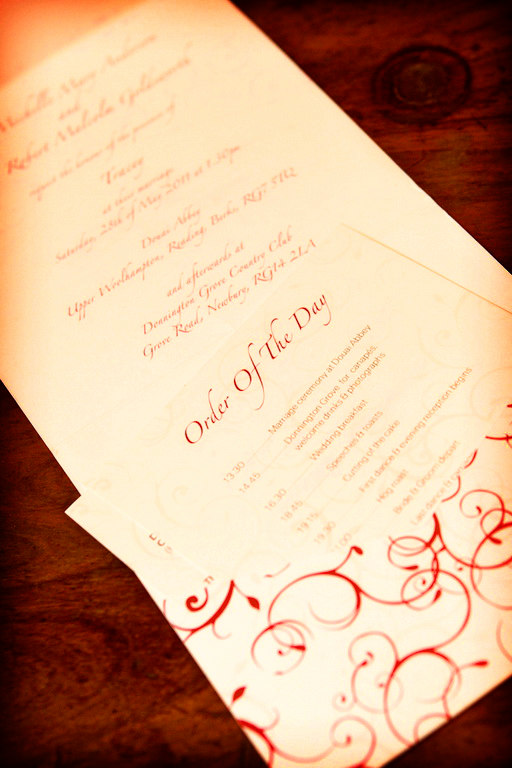 Michelle Mary Anderson
and
Robert Malcolm Goldsworth
request the honour of the pleasure of
Tracey
at their marriage
Saturday, 28th of May 2011 at 1.30pm
Douai Abbey
Upper Woolhampton, Reading, Berks, RG7 5TQ
and afterwards at
Donnington Grove Country Club
Grove Road, Newbury, RG14 2LA
Order Of The Day
13.30 Marriage ceremony at Douai Abbey
14.45 Donnington Grove for canapés,
welcome drinks & photographs
16.30 Wedding breakfast
18.45 Speeches & toasts
19.15 Cutting of the cake
19.30 First dance & evening reception begins
Hog roast
Bride & Groom depart
Last dance